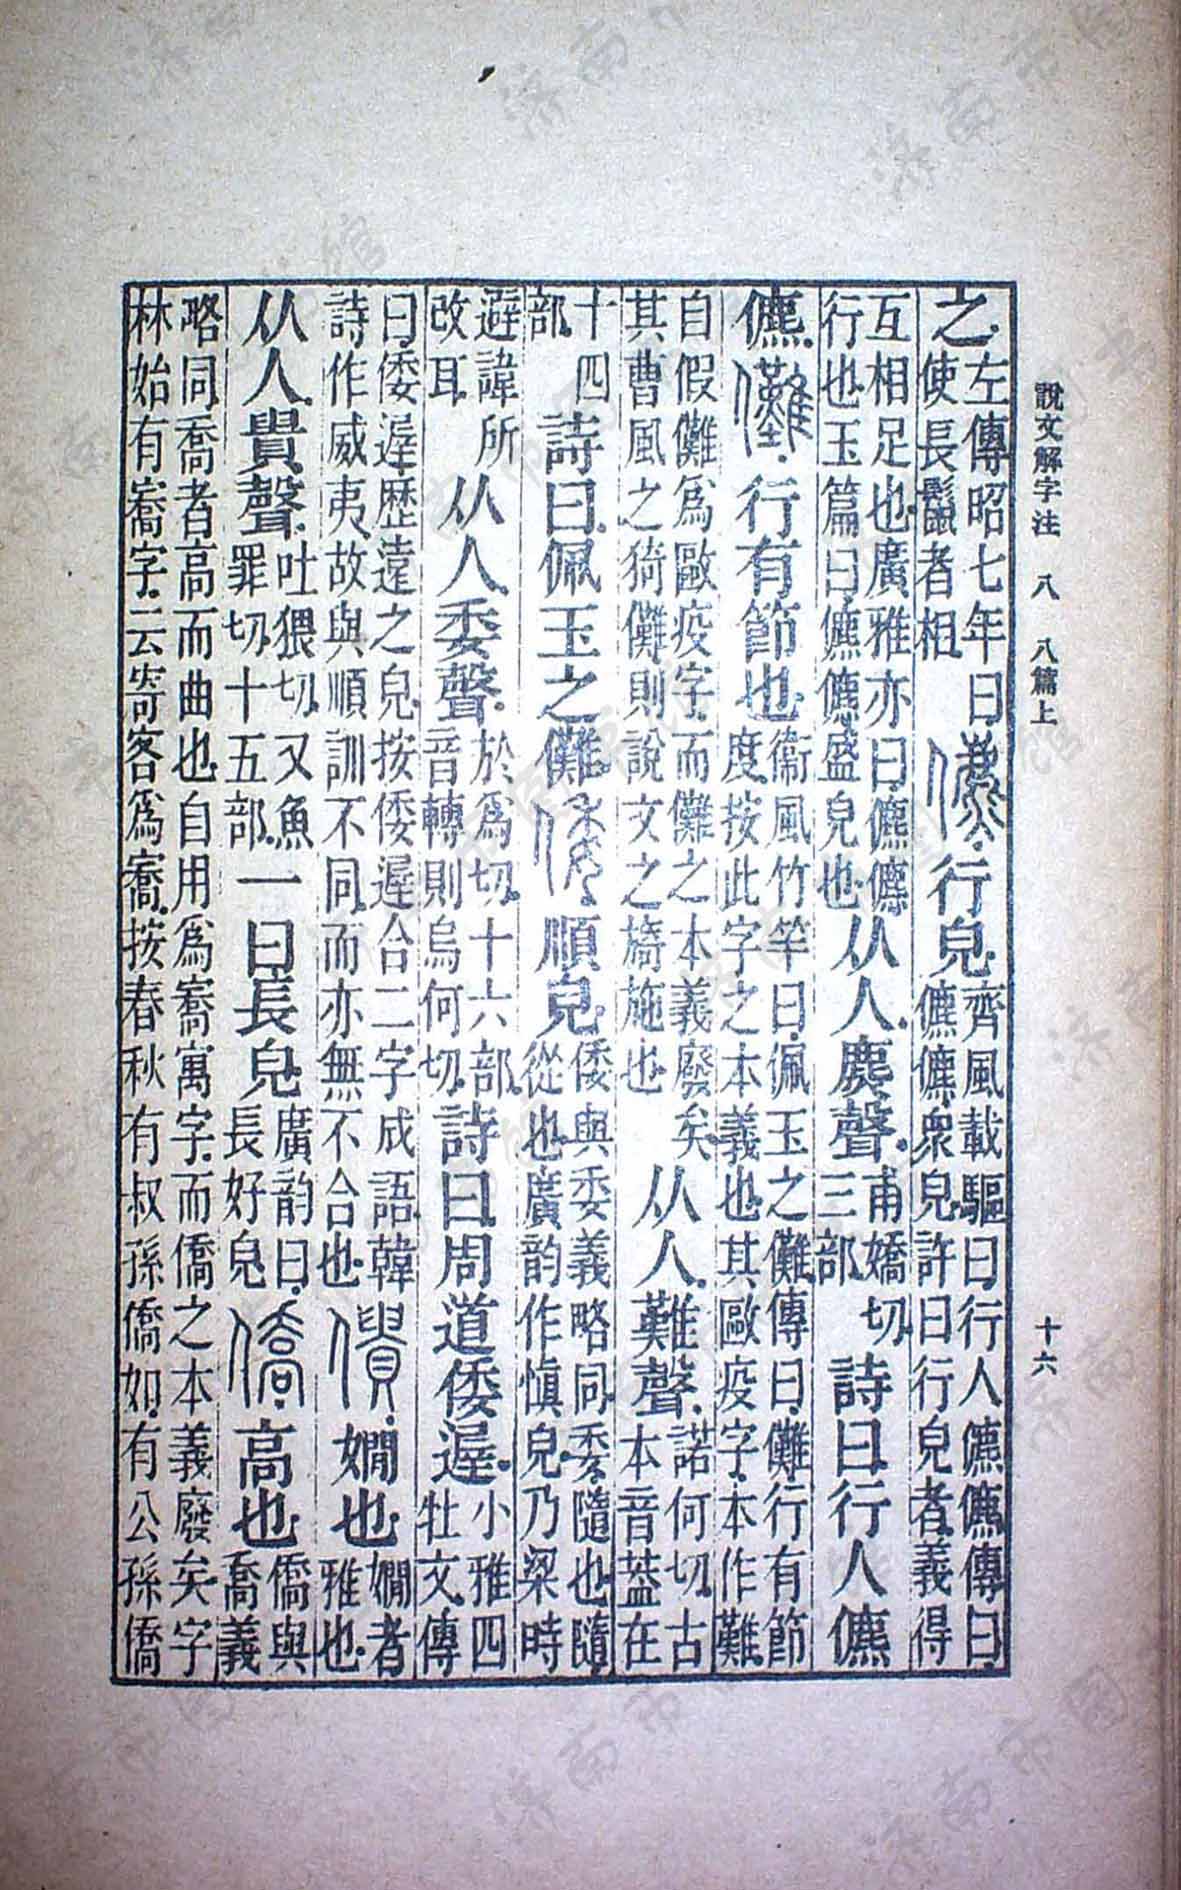 說文解字注 八 八篇上 十六
之。左傳昭七年曰。使長鬛者相。儦行皃。齊風載驅曰。行人儦儦。傳曰。儦儦衆皃。許曰行皃者。義得
互相足也。廣雅亦曰儦儦行也。玉篇曰。儦儦盛皃也。从人。麃聲。甫嬌切。三部。詩曰行人儦
儦。儺。行有節也。衞風竹竿曰。佩玉之儺。傳曰。儺行有節度。按此字之本義也。其歐疫字。本作難。
自假儺爲歐疫字。而儺之本義廢矣。其曹風之猗儺。則說文之旖施也。从人。難聲。諾何切。古本音葢在
十四部。詩曰。佩玉之儺。倭。順皃。倭與委義略同。委。隨也。隨從也。廣韵作愼皃。乃梁時
避諱所改耳。从人。委聲。於爲切。十六部。音轉則烏何切。詩曰周道倭遟。小雅四牡文。傳
曰。倭遟歷遠之皃。按倭遟合二字成語。韓詩作威夷。故與順訓不同。而亦無不合也。僓。嫺也。嫺者雅也。
从人。貴聲。吐猥切。又魚罪切。十五部。一曰長皃。廣韵曰。長好皃。僑。高也。僑與喬義
略同。喬者高而曲也。自用爲㝯寓字。而僑之本義廢矣。字林始有㝯字。云寄客爲㝯。按春秋有叔孫僑如。有公孫僑